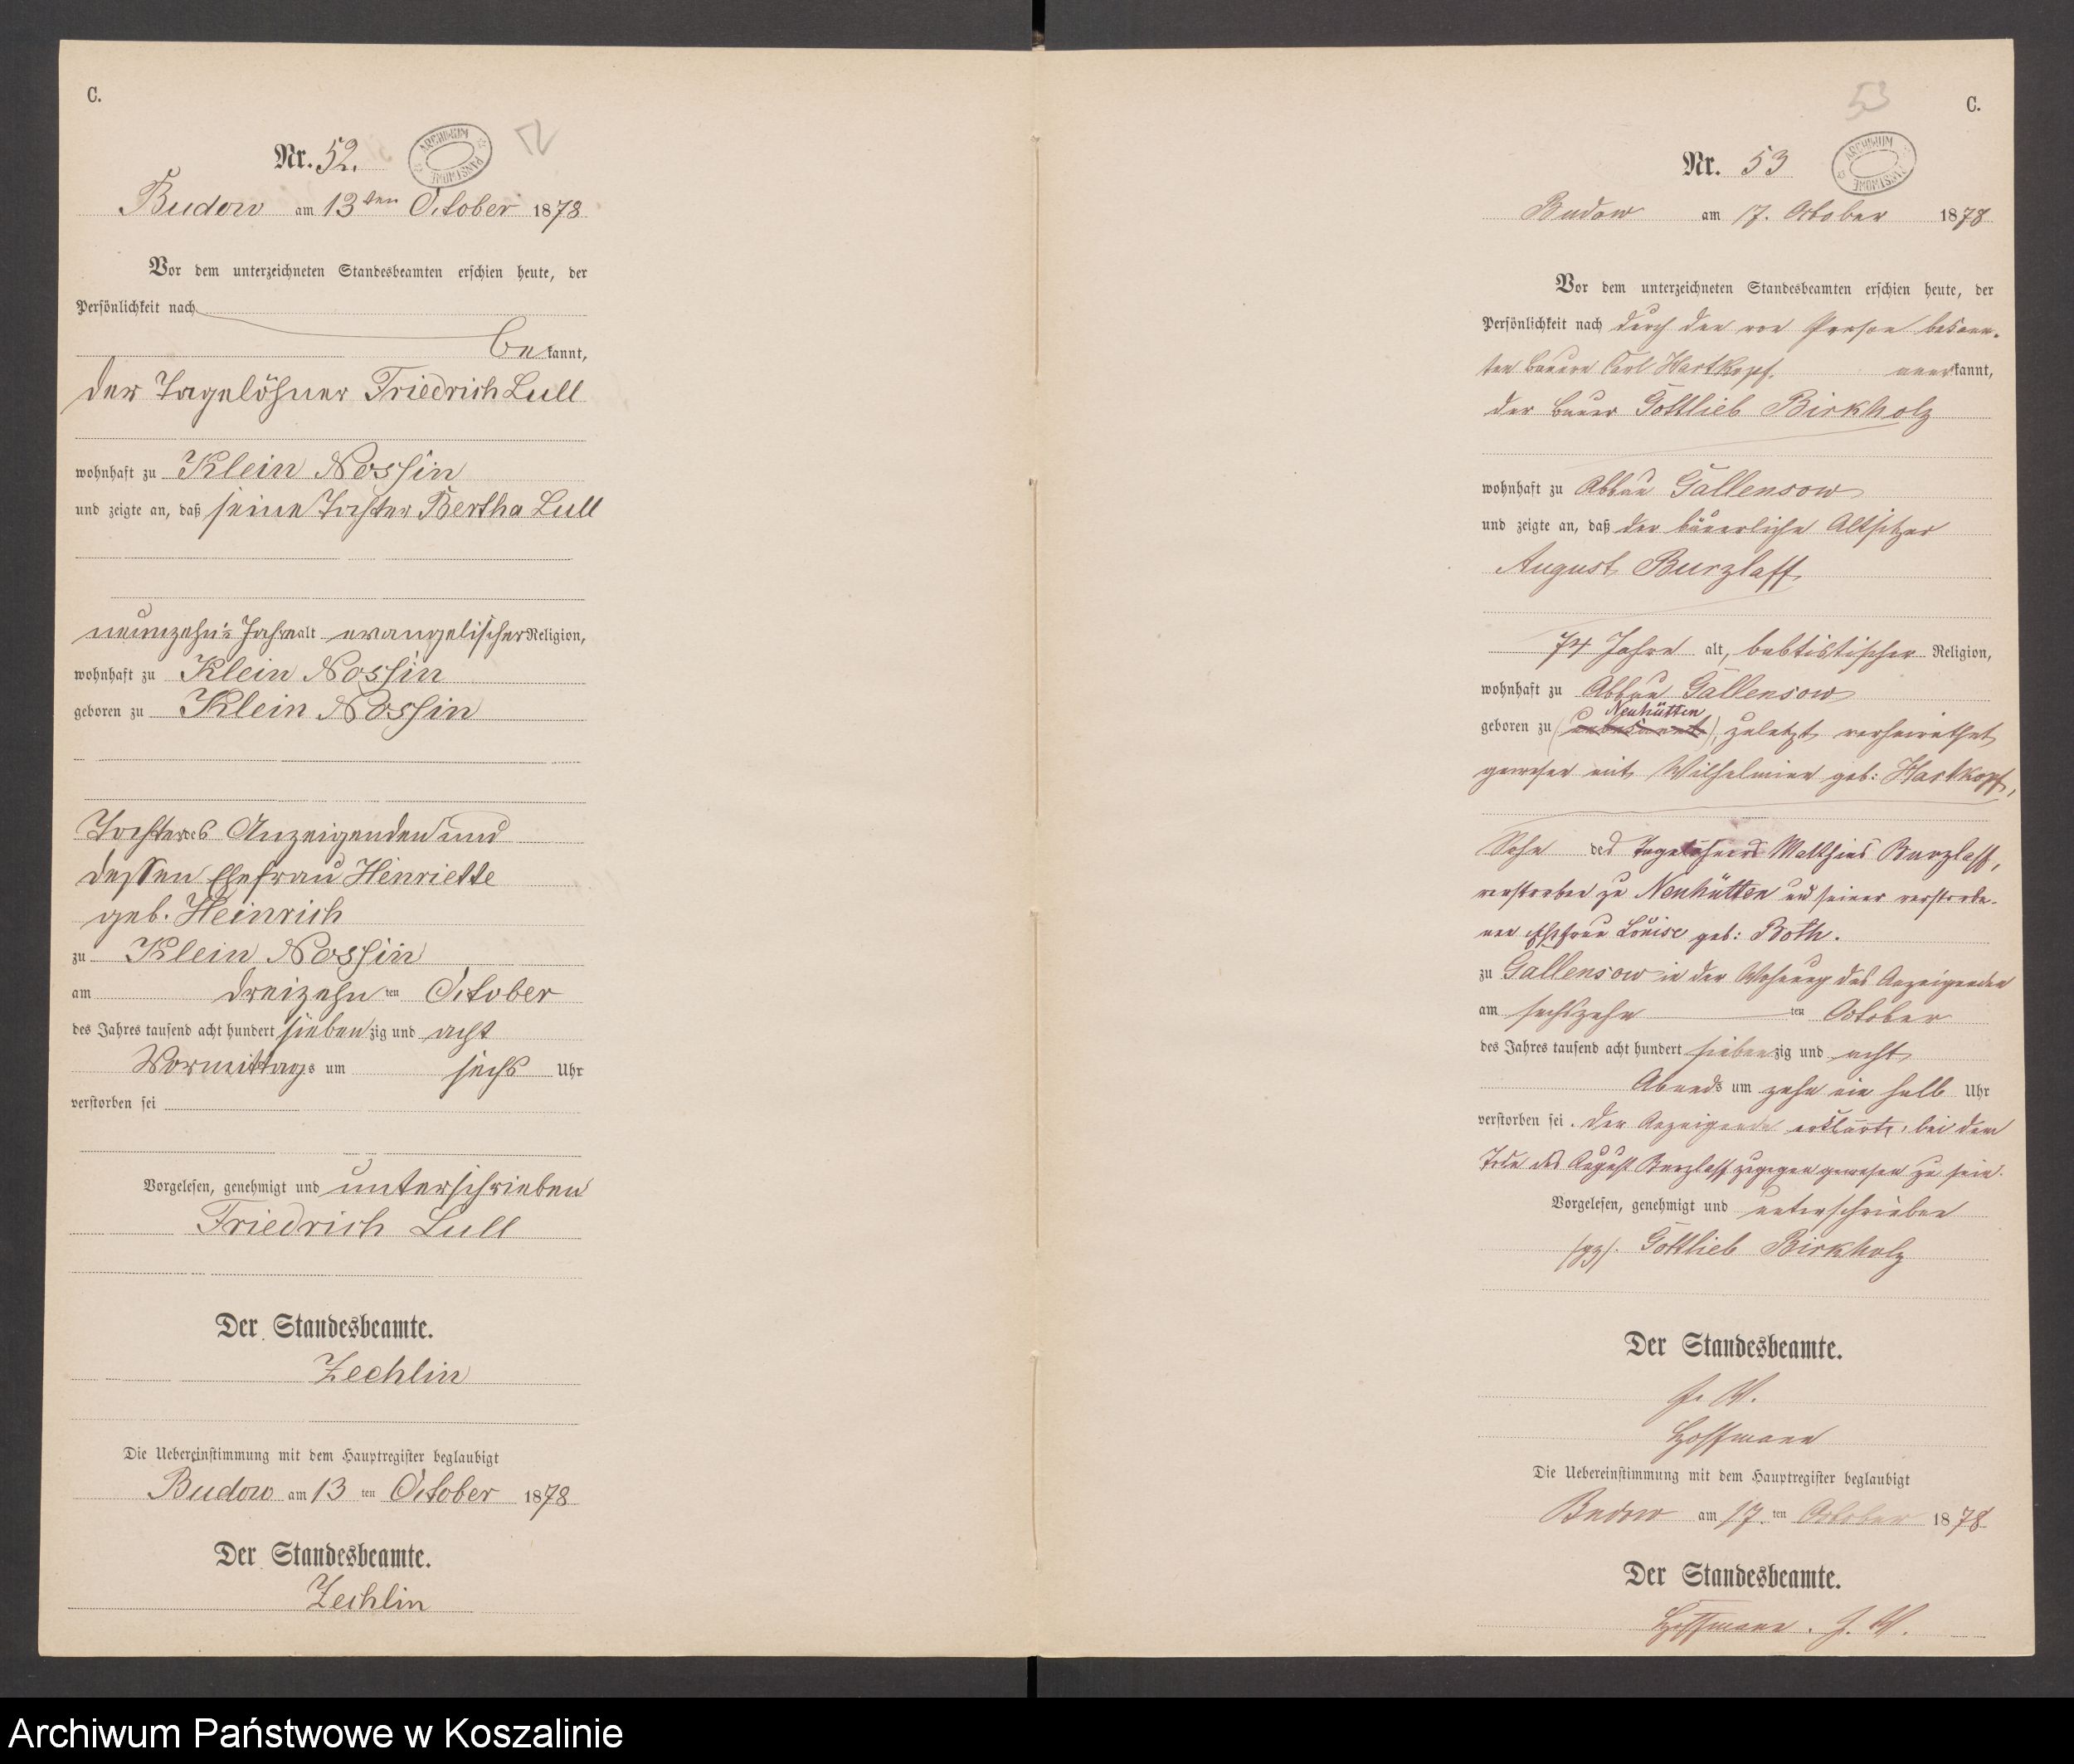 C.
Nr. 52.
ARCHIWUM PAŃSTWOWE
52
Budow am 13ten October 1878
Vor dem unterzeichneten Standesbeamten erschien heute, der
Persönlichkeit nach
bekannt,
der Tagelöhner Friedrich Lull
wohnhaft zu Klein Nossin
und zeigte an, daß seine Tochter Bertha Lull
neunzehn Jahre alt evangelischer Religion,
wohnhaft zu Klein Nossin
geboren zu Klein Nossin
Tochter des Anzeigenden und
dessen Ehefrau Henriette
geb. Heinrich
zu Klein Nossin
am dreizehn ten October
des Jahres tausend acht hundert siebenzig und acht
Vormittags um sechs Uhr
verstorben sei
Vorgelesen, genehmigt und unterschrieben
Friedrich Lull
Der Standesbeamte.
Zechlin
Die Uebereinstimmung mit dem Hauptregister beglaubigt
Budow am 13 ten October 1878
Der Standesbeamte.
Zechlin
53
C.
Nr. 53
ARCHIWUM PAŃSTWOWE
Budow am 17. October 1878
Vor dem unterzeichneten Standesbeamten erschien heute, der
Persönlichkeit nach durch den von Person bekann-
ten Bauern Carl Hartkopf. anerkannt,
der Bauer Gottlieb Birkholz
wohnhaft zu Abbau Gallensow
und zeigte an, daß der bäuerliche Altsitzer
August Burzlaff
74 Jahre alt, babtistischer Religion,
wohnhaft zu Abbau Gallensow
Neuhütten
geboren zu (unbekannt), zuletzt verheirathet
gewesen mit Wilhelmine geb: Hartkopf,
Sohn des Tagelöhners Matthias Burzlaff,
verstorben zu Neuhütten und seiner verstorbe-
nen Ehefrau Louise geb: Both.
zu Gallensow in der Wohnung des Anzeigenden
am sechszehn ten October
des Jahres tausend acht hundert siebenzig und acht
Abends um zehn ein halb Uhr
verstorben sei. Der Anzeigende erklärte, bei dem
Tode des August Burzlaff zugegen gewesen zu sein.
Vorgelesen, genehmigt und unterschrieben
/gz/. Gottlieb Birkholz
Der Standesbeamte.
J. V.
Hoffmann
Die Uebereinstimmung mit dem Hauptregister beglaubigt
Budow am 17. ten October 1878
Der Standesbeamte.
Hoffmann. J. V.
Archiwum Państwowe w Koszalinie